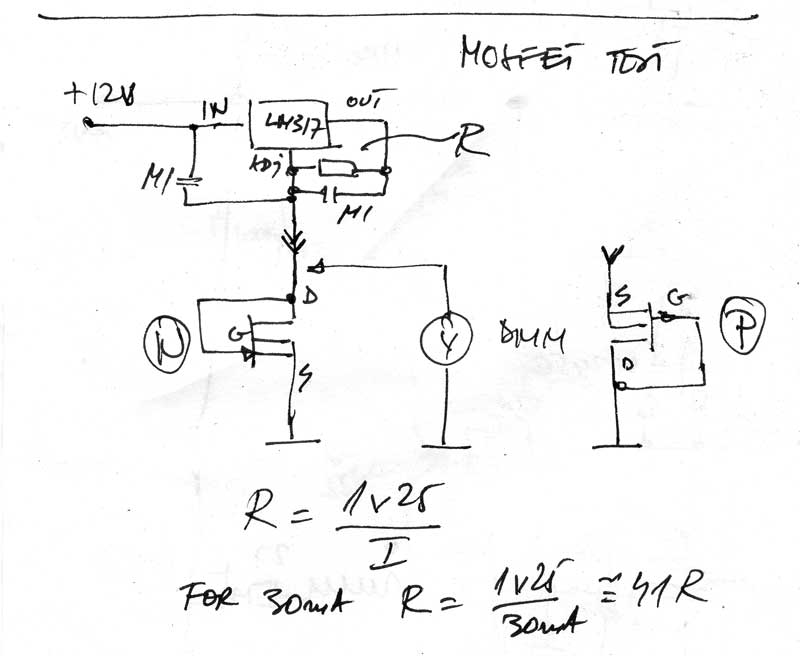 MOSFET TEST
+12V
IN
LM317
OUT
ADj
R
M1
M1
D
G
S
N
V
DMM
S
G
D
P
R = 1v25 / I
FOR 30mA R = 1v25 / 30mA ≅ 41R